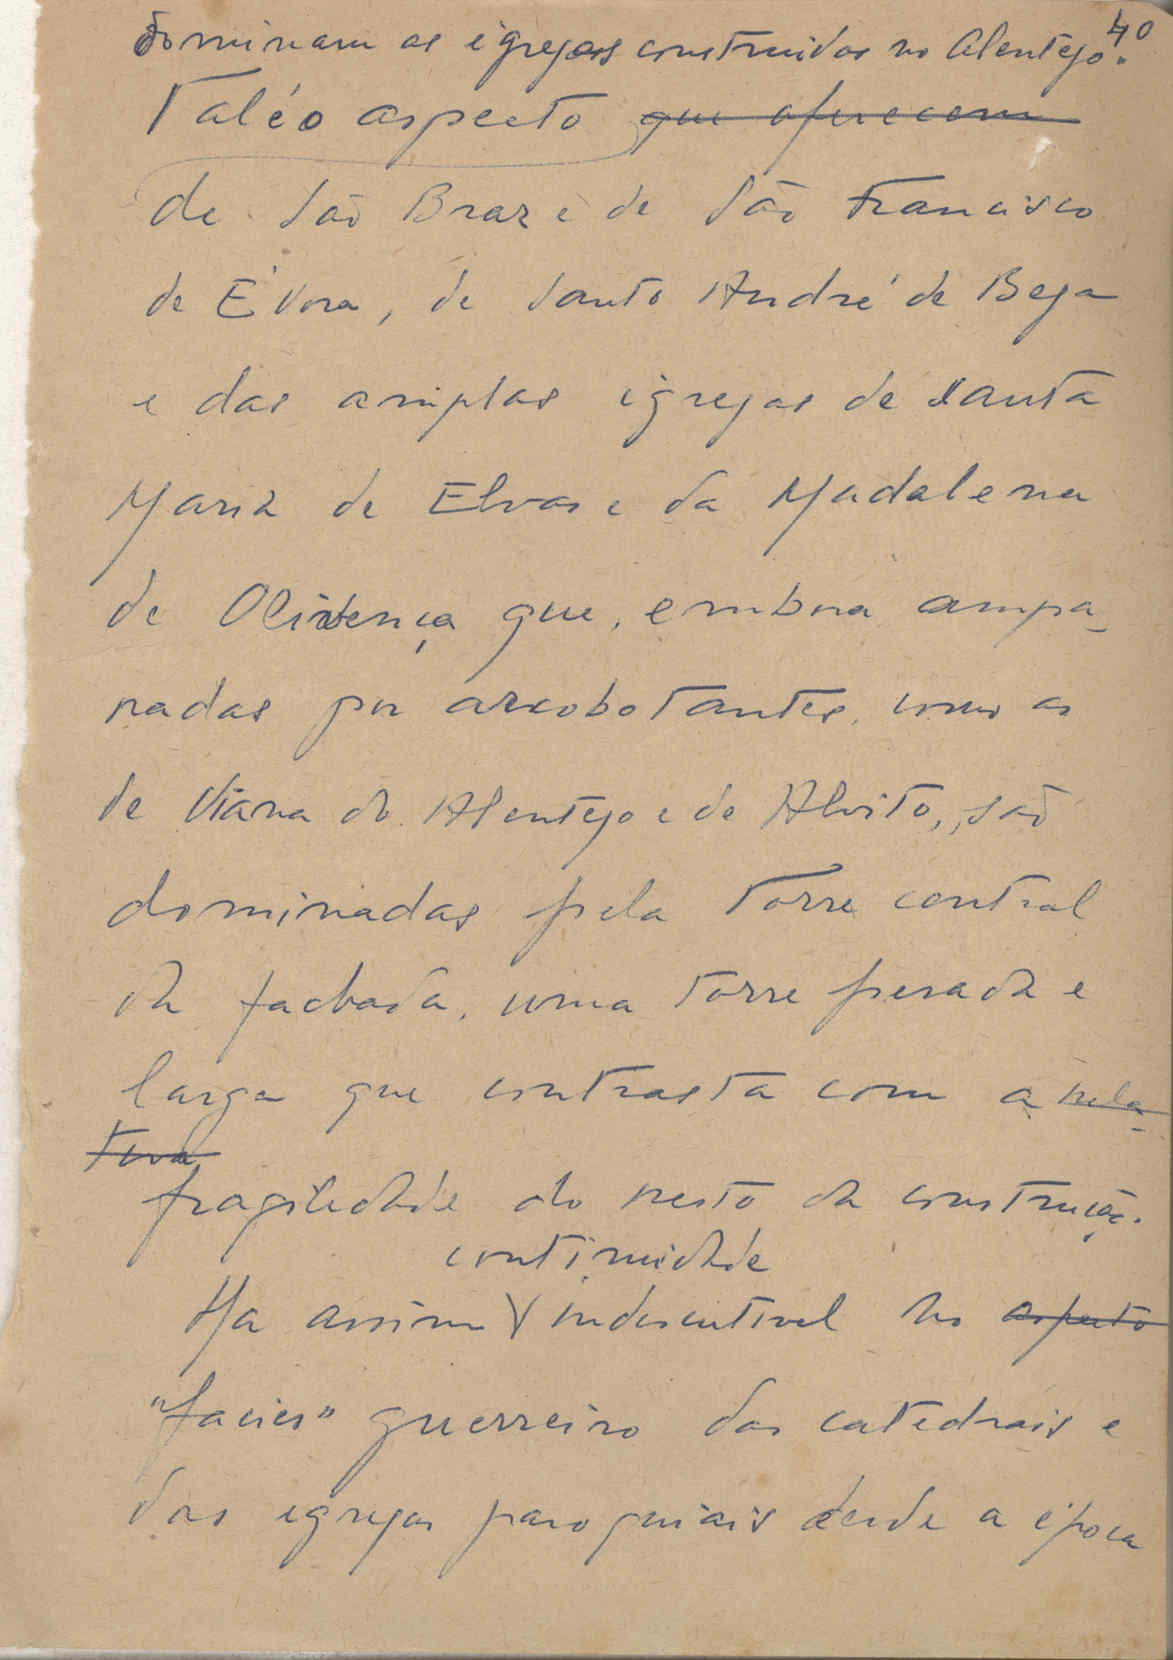 40
dominam as igrejas construidas no Alentejo.
Tal é o aspecto que oferecem
de São Braz e de São Francisco
de Évora, de Santo André de Beja
e das amplas igrejas de Santa
Maria de Elvas e da Madalena
de Olivença que, embora ampa-
radas por arcobotantes, como as
de Viana do Alentejo e de Alvito, são
dominadas pela torre central
da fachada, uma torre pesada e
larga que contrasta com a rela-
tiva
fragilidade do resto da construção.
continuidade
Ha assim indiscutivel no aspecto
"facies" guerreiro das catedrais e
das igrejas paroquiais desde a época